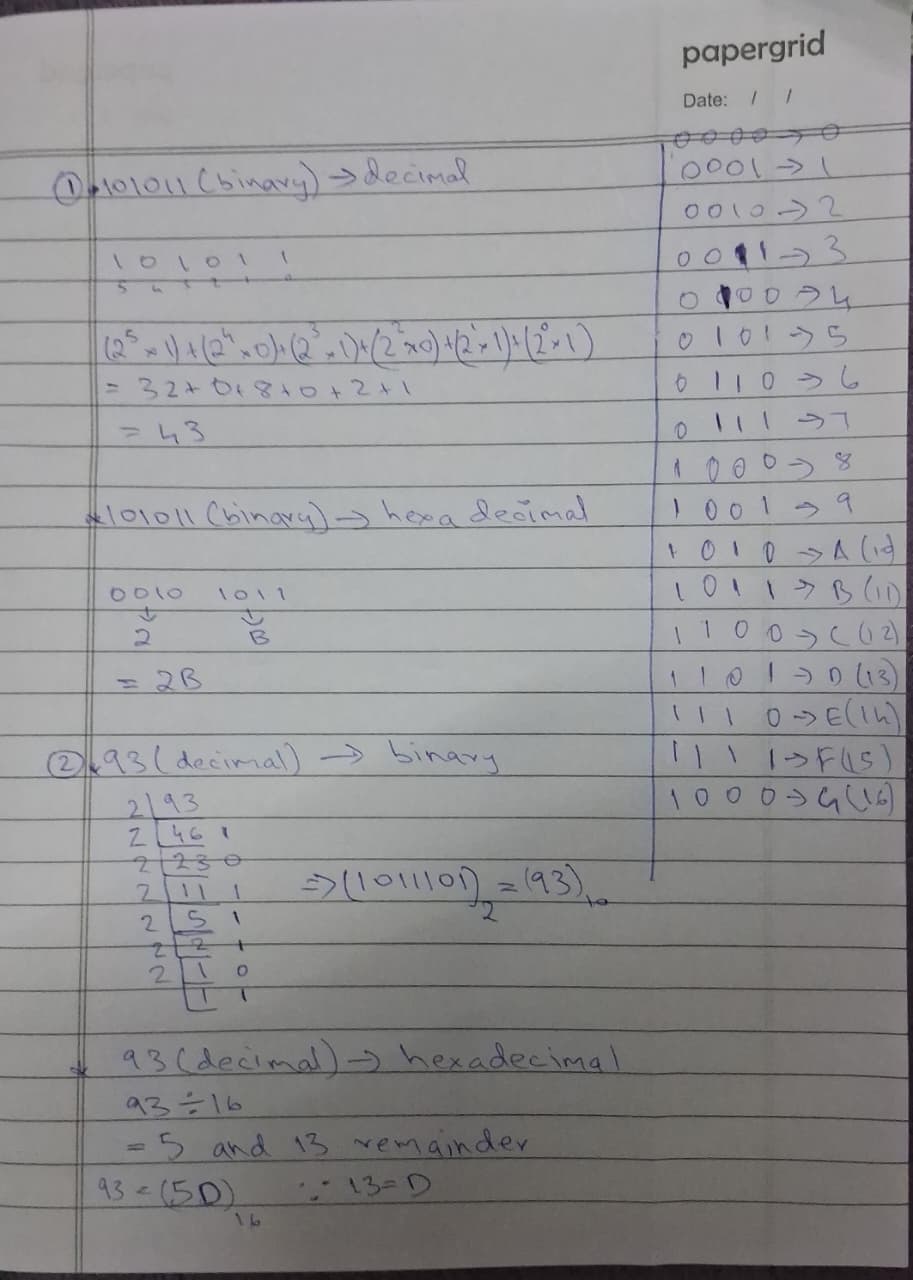 papergrid
Date: / /
① 101011 (binary) → decimal
1 0 1 0 1 1
5 4 3 2 1 0
(2⁵×1)+(2⁴×0)+(2³×1)+(2²×0)+(2¹×1)+(2⁰×1)
= 32+0+8+0+2+1
= 43
101011 (binary) → hexa decimal
0010 1011
↓ ↓
2 B
= 2B
② 93 (decimal) → binary
2 | 93
2 | 46 1
2 | 23 0
2 | 11 1
2 | 5 1
2 | 2 1
2 | 1 0
| 1 1
⇒ (1011101)₂ = (93)₁₀
93 (decimal) → hexadecimal
93 ÷ 16
= 5 and 13 remainder
93 = (5D)₁₆ ∵ 13 = D
0000 → 0
0001 → 1
0010 → 2
0011 → 3
0100 → 4
0101 → 5
0110 → 6
0111 → 7
1000 → 8
1001 → 9
1010 → A (10)
1011 → B (11)
1100 → C (12)
1101 → D (13)
1110 → E (14)
1111 → F (15)
1000 → G (16)